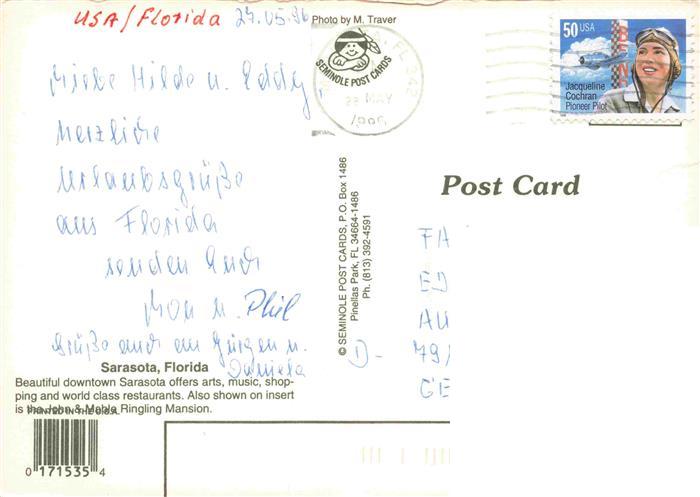 USA/Florida 27.05.96
Liebe Hilde u. Eddy,
Herzliche
Urlaubsgrüße
aus Florida
senden Euch
u. Phil
Grüße auch an Jürgen u.
Daniela
Photo by M. Traver
SEMINOLE POST CARDS
FL 342
28 MAY
1996
50 USA
Jacqueline
Cochran
Pioneer Pilot
Post Card
© SEMINOLE POST CARDS, P.O. Box 1486
Pinellas Park, FL 34664-1486
Ph. (813) 392-4591
FA
ED
AU
D- 79
GE
Sarasota, Florida
Beautiful downtown Sarasota offers arts, music, shop-
ping and world class restaurants. Also shown on insert
is the John & Mable Ringling Mansion.
PRINTED IN THE U.S.A.
0 171535 4